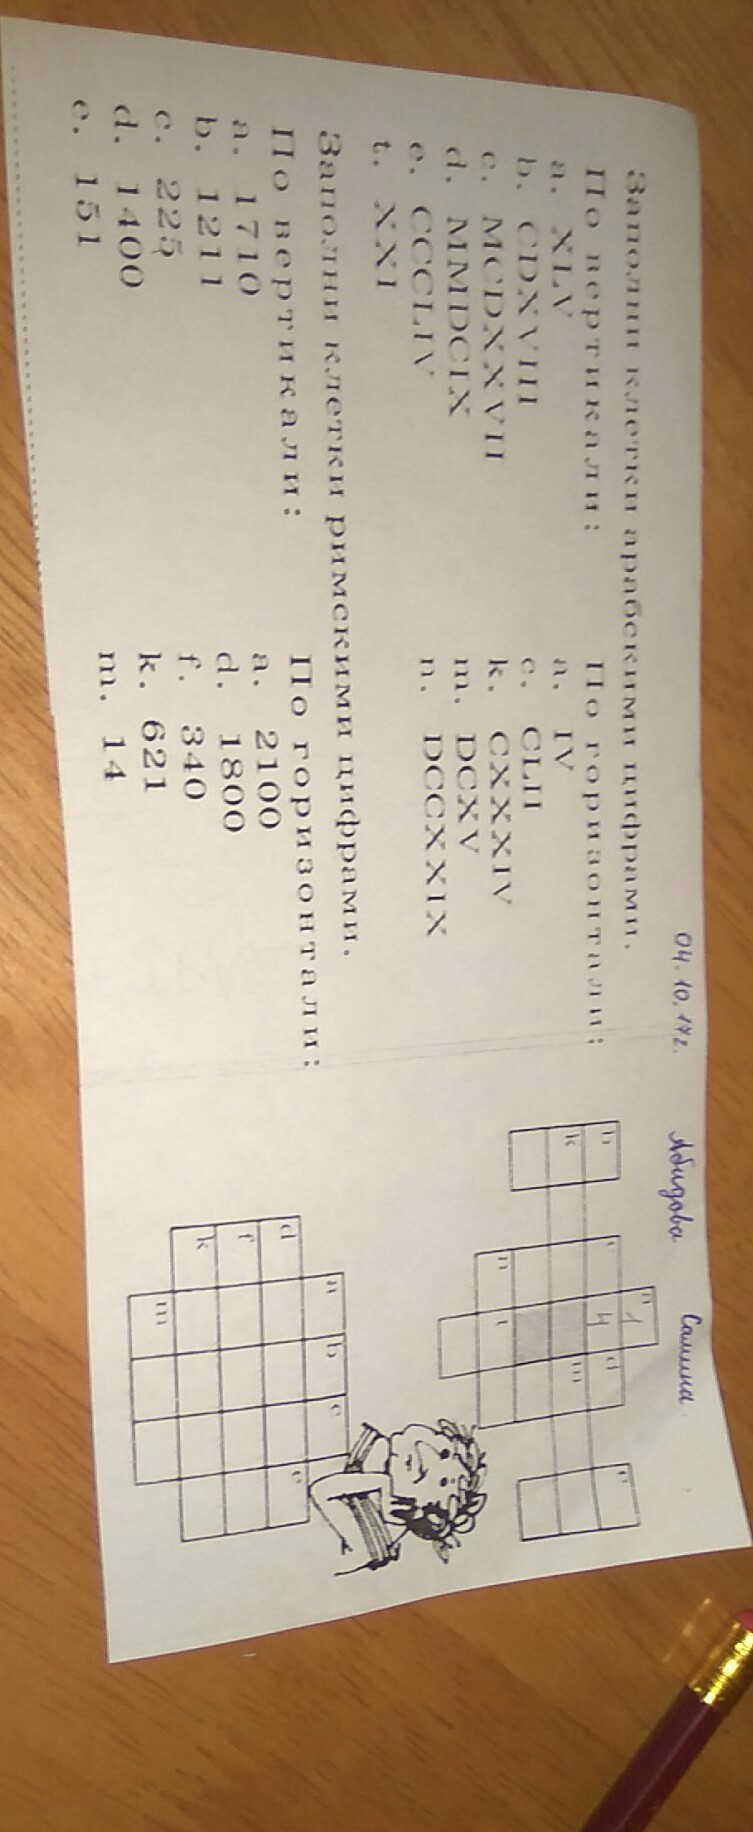 04.10.17г. Абидова Самина
Заполни клетки арабскими цифрами.
По вертикали:
a. XLV
b. CDXVIII
c. MCDXXVII
d. MMDCIX
e. CCCLIV
t. XXI
По горизонтали:
a. IV
c. CLII
k. CXXXIV
m. DCXV
n. DCCXXIX
a
1
b
c
4
d
e
k
m
n
t
Заполни клетки римскими цифрами.
По вертикали:
a. 1710
b. 1211
c. 225
d. 1400
e. 151
По горизонтали:
a. 2100
d. 1800
f. 340
k. 621
m. 14
a b c
d e
f
k
m